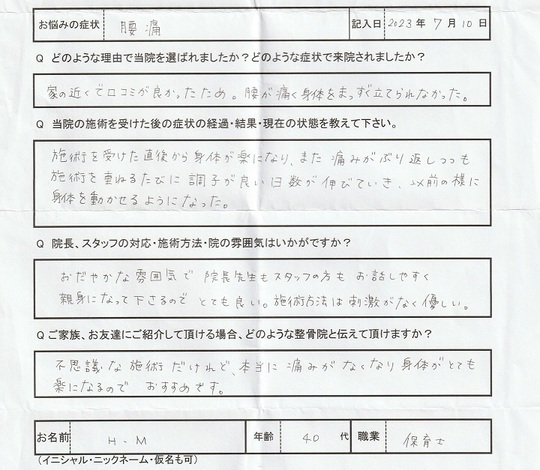 お悩みの症状 腰痛 記入日 2023年 7月 10日
Q どのような理由で当院を選ばれましたか？どのような症状で来院されましたか？
家の近くで口コミが良かったため。腰が痛く身体をまっすぐ立てられなかった。
Q 当院の施術を受けた後の症状の経過・結果・現在の状態を教えて下さい。
施術を受けた直後から身体が楽になり、また痛みがぶり返しつつも
施術を重ねるたびに調子が良い日数が伸びていき、以前の様に
身体を動かせるようになった。
Q 院長、スタッフの対応・施術方法・院の雰囲気はいかがですか？
おだやかな雰囲気で院長先生もスタッフの方もお話しやすく
親身になって下さるのでとても良い。施術方法は刺激がなく優しい。
Q ご家族、お友達にご紹介して頂ける場合、どのような整骨院と伝えて頂けますか？
不思議な施術だけれど、本当に痛みがなくなり身体がとても
楽になるので おすすめです。
お名前 H.M 年齢 40代 職業 保育士
（イニシャル・ニックネーム・仮名も可）